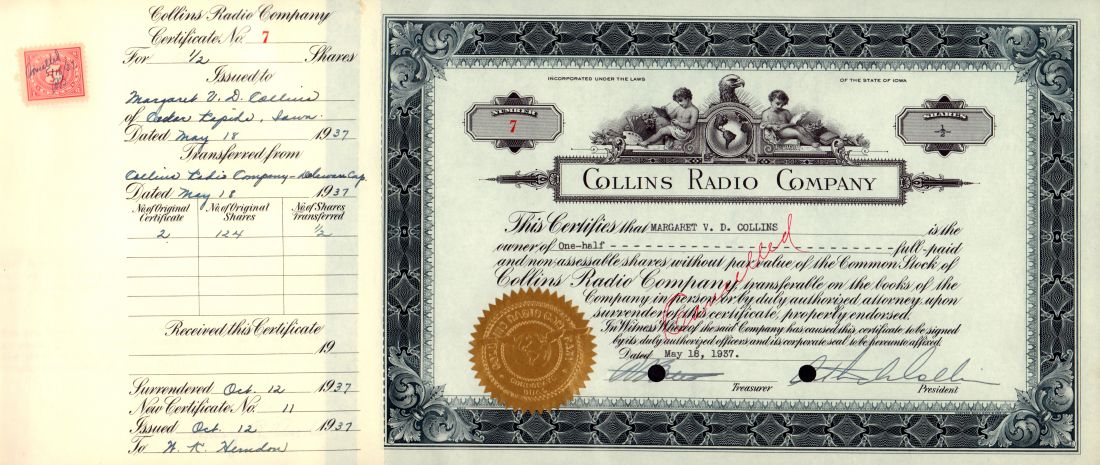 Collins Radio Company
Certificate No. 7
For 1/2 Shares
Issued to
Margaret V. D. Collins
of Cedar Rapids, Iowa.
Dated May 18 1937
Transferred from
Collins Radio Company - Delaware Corp.
Dated May 18 1937
No. of Original Certificate No. of Original Shares No. of Shares Transferred
2 124 1/2
Received this Certificate
19
Surrendered Oct. 12 1937
New Certificate No. 11
Issued Oct. 12 1937
To W. K. Herndon
INCORPORATED UNDER THE LAWS OF THE STATE OF IOWA
NUMBER
7
SHARES
-½-
COLLINS RADIO COMPANY
This Certifies that MARGARET V. D. COLLINS is the
owner of One-half - - - - - - - - - - - - - - - - - - - - - - - - - full-paid
and non-assessable shares without par value of the Common Stock of
Collins Radio Company transferable on the books of the
Company in person or by duly authorized attorney upon
surrender of this certificate, properly endorsed.
In Witness Whereof the said Company has caused this certificate to be signed
by its duly authorized officers and its corporate seal to be hereunto affixed.
Dated May 18, 1937.
Treasurer President
Cancelled
COLLINS RADIO COMPANY